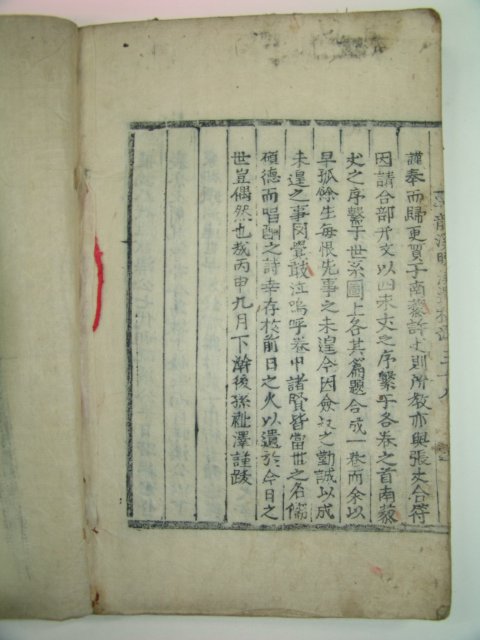 謹奉而歸更質于南黎許丈則所教亦與張丈合符
因請合部卞文以四未丈之序繫乎各卷之首南黎
丈之序繫于世系圖上各其篇題合成一卷而余以
早孤餘生每恨先事之未遑今因僉 之勤誠以成
未遑之事罔覺鼓泣嗚呼卷中諸賢皆當世之名儒
碩德而唱酬之詩幸存於前日之火以遺於今日之
世豈偶然也哉丙申九月下澣後孫 澤謹跋